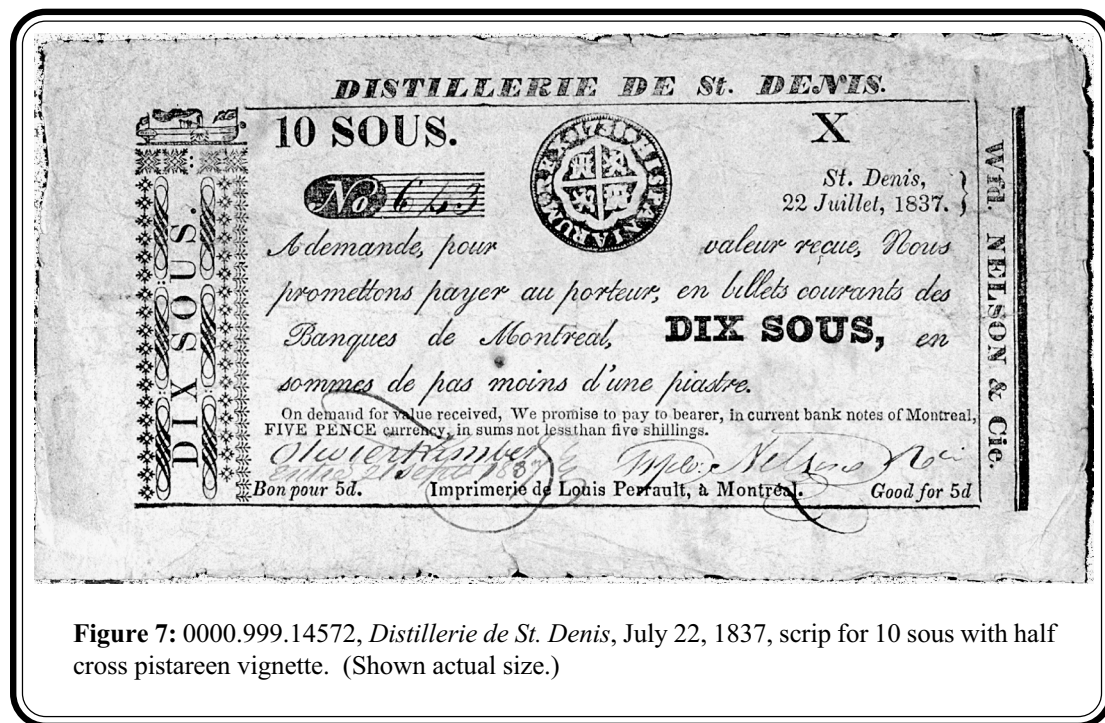 DISTILLERIE DE St. DENIS.
10 SOUS.
X
No 643
HISPANIARUM REX 17
St. Denis,
22 Juillet, 1837.
A demande, pour valeur reçue, Nous
promettons payer au porteur, en billets courants des
Banques de Montreal, DIX SOUS, en
sommes de pas moins d'une piastre.
On demand for value received, We promise to pay to bearer, in current bank notes of Montreal,
FIVE PENCE currency, in sums not less than five shillings.
Nelson
Bon pour 5d. Imprimerie de Louis Perrault, à Montréal. Good for 5d
DIX SOUS.
Wfd. NELSON & Cie.
Figure 7: 0000.999.14572, Distillerie de St. Denis, July 22, 1837, scrip for 10 sous with half
cross pistareen vignette. (Shown actual size.)